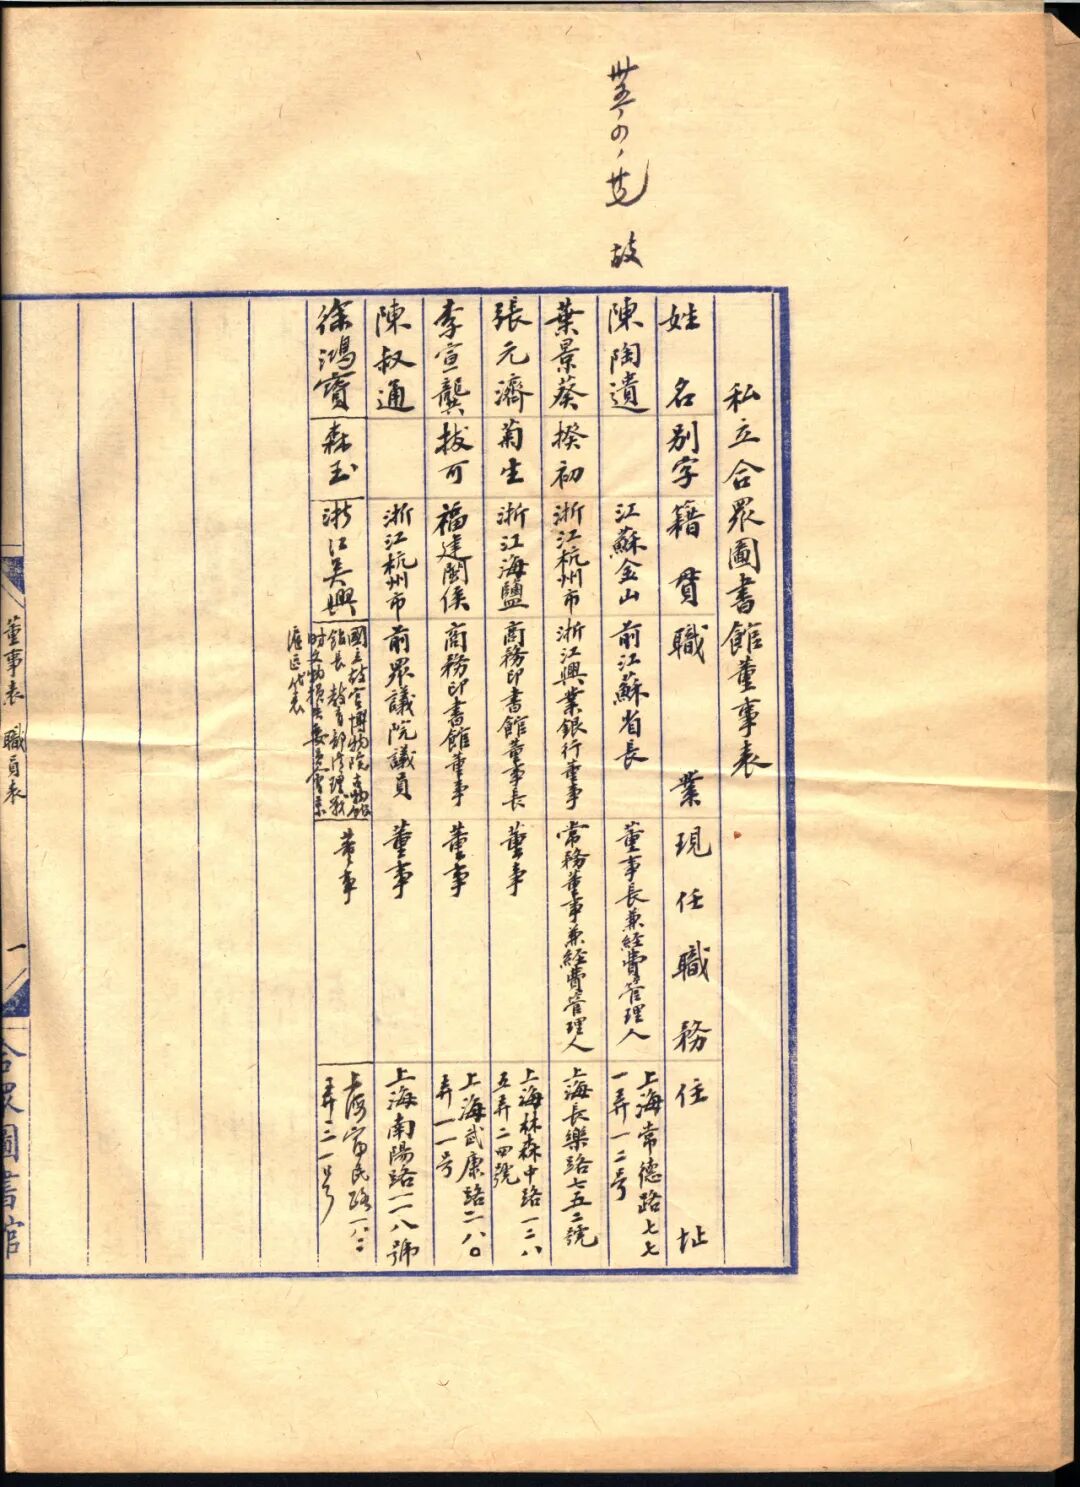 卅五、四、廿七 故
私立合眾圖書館董事表
姓名 別字 籍貫 職業 現任職務 住址
陳陶遺 江蘇金山 前江蘇省長 董事長兼經費管理人 上海常德路七七
一弄一二号
葉景葵 揆初 浙江杭州市 浙江興業銀行董事 常務董事兼經費管理人 上海長樂路七五二號
張元濟 菊生 浙江海鹽 商務印書館董事長 董事 上海林森中路一二八
五弄二四號
李宣龔 拔可 福建閩侯 商務印書館董事 董事 上海武康路二八〇
弄一一号
陳叔通 浙江杭州市 前眾議院議員 董事 上海南陽路一一八號
徐鴻寶 森玉 浙江吳興 國立故宮博物院古物館
館長 教育部清理戰
時文物損失委員會京
滬區代表 董事 上海富民路一八二
弄二一号
董事表 職員表
一
合眾圖書館